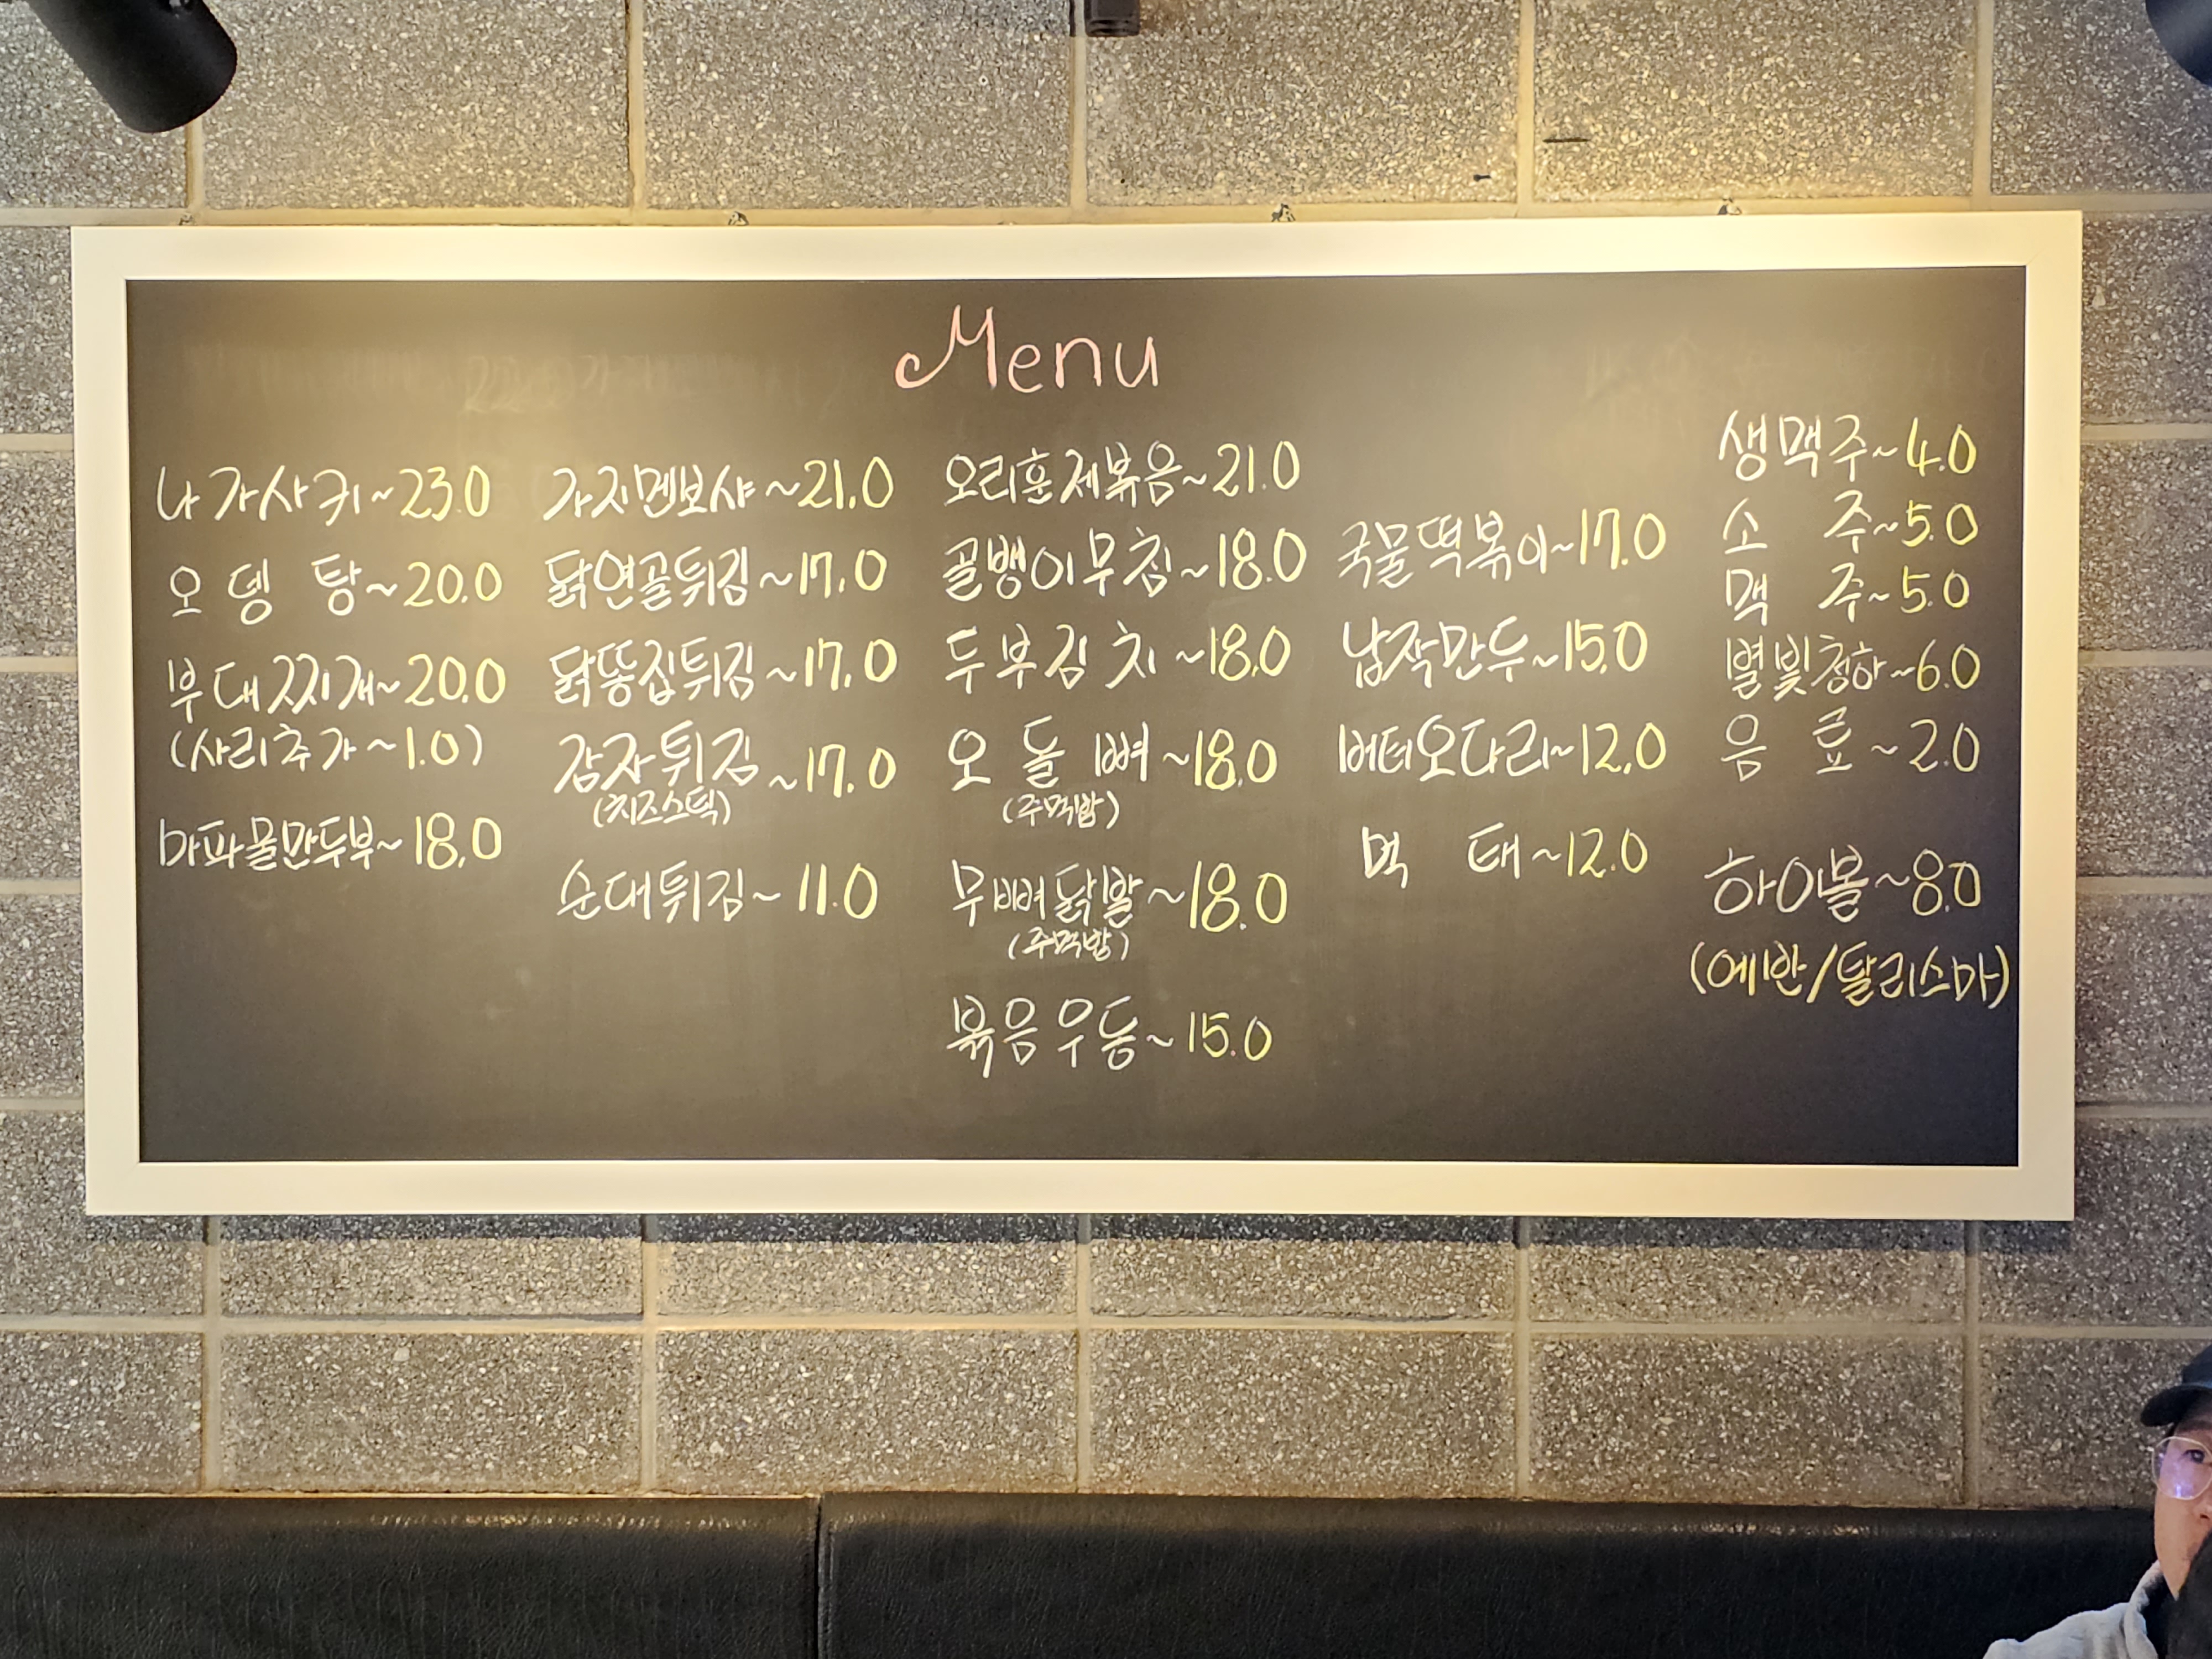 Menu
나가사키~23.0
오뎅탕~20.0
부대찌개~20.0
(사리추가~1.0)
마파몰만두부~18.0
가지멘보샤~21.0
닭연골튀김~17.0
닭똥집튀김~17.0
감자튀김~17.0
(치즈스틱)
순대튀김~11.0
오리훈제볶음~21.0
골뱅이무침~18.0
두부김치~18.0
오돌뼈~18.0
(주먹밥)
무뼈닭발~18.0
(주먹밥)
볶음우동~15.0
국물떡볶이~17.0
납작만두~15.0
버터오다리~12.0
먹태~12.0
생맥주~4.0
소주~5.0
맥주~5.0
별빛청하~6.0
음료~2.0
하이볼~8.0
(에반/탈리스마)